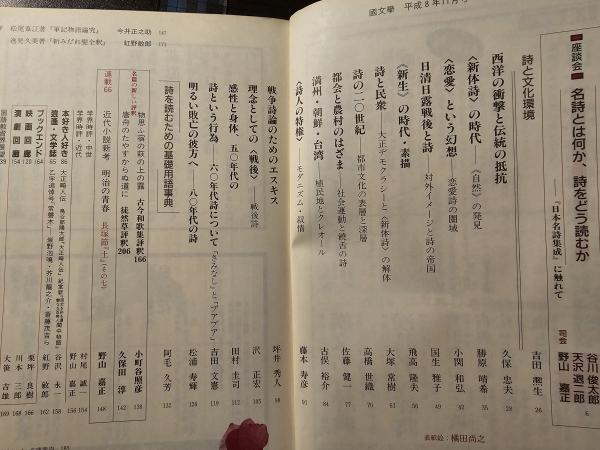 國文學 平成8年11月
■座談会■
名詩とは何か、詩をどう読むか
『日本名詩集成』に触れて
谷川俊太郎
天沢退二郎
司会 野山嘉正 6
詩と文化環境 吉田凞生 26
西洋の衝撃と伝統の抵抗 久保忠夫 28
〈新体詩〉の時代 〈自然〉の発見 勝原晴希 35
〈恋愛〉という幻想 恋愛詩の圏域 小関和弘 42
日清日露戦後と詩 対外イメージと詩の帝国 国生雅子 49
〈新生〉の時代・素描 飛高隆夫 56
詩と民衆 大正デモクラシーと〈新体詩〉の解体 大塚常樹 63
詩の二〇世紀 都市文化の表層と深層 高橋世織 70
都会と農村のはざま 社会運動と饒舌の詩 佐藤健一 77
満州・朝鮮・台湾 植民地とクレオール 古俣裕介 84
〈詩人の特権〉 モダニズム・叙情 藤本寿彦 91
表紙絵：橘田尚之
戦争詩論のためのエスキス 坪井秀人 98
理念としての〈戦後〉 戦後詩 沢正宏 105
感性と身体、五〇年代の 田村圭司 112
詩という行為 六〇年代詩について「さんなし」と「プアプア」 吉田文憲 119
明るい敗亡の彼方へ 八〇年代の詩 松浦寿輝 128
詩を読むための基礎用語事典 阿毛久芳 132
名篇の新しい評釈
物思ふ宿の萩の上の露 古今和歌集評釈166 小町谷照彦 138
唐舟のたやすからぬ道に 徒然草評釈206 久保田淳 142
連載66
近代小説新考 明治の青春 長塚節『土』（その七） 野山嘉正 148
学界時評・中世 村尾誠一 154
学界時評・近代 野山嘉正 156
本好き人好き 86 谷沢永一 158
逍遥・文学誌 65 紅野敏郎 162
ブックエンド 164 栗坪良樹
映画回廊 120 川本三郎 168
演劇回廊 154 大笹吉雄 169
国語教育界展望 39
松尾葦江著『軍記物語論究』 今井正之助 167
逸見久美著『新みだれ髪全釈』 紅野敏郎 171